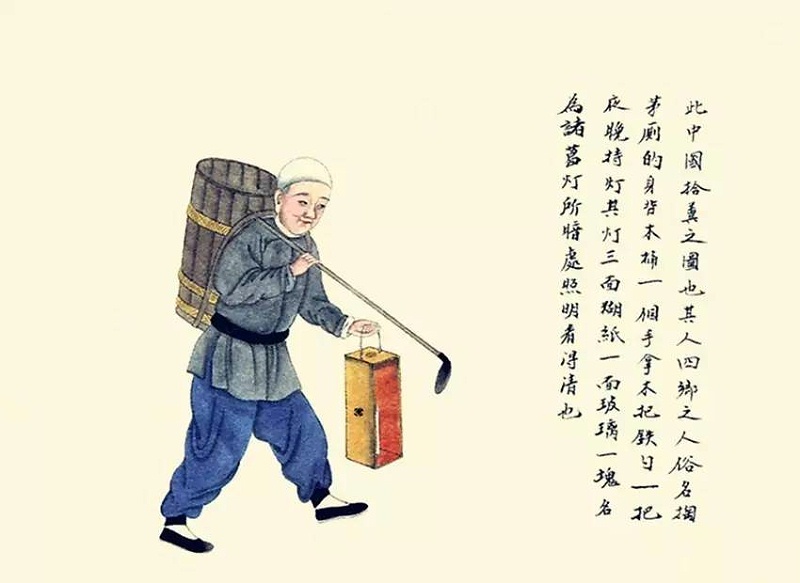 此中國拾糞之圖也其人四鄉之人俗名掏
茅厠的身背木桶一個手拿木把鉄勺一把
夜晚持灯其灯三面糊紙一面玻璃一塊名
為諸葛灯所暗處照明看得清也